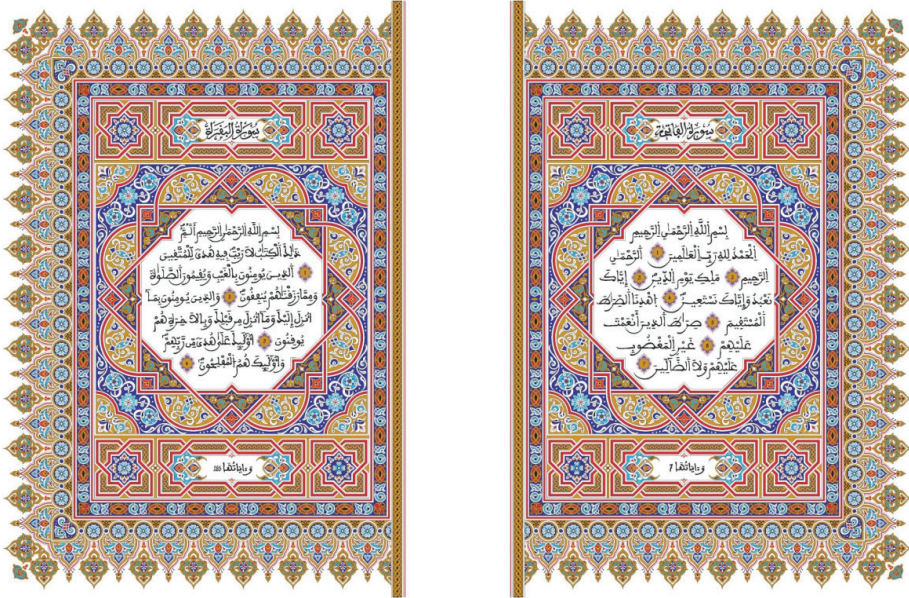 سُورَةُ الْفَاتِحَةِ
بِسْمِ اللَّهِ الرَّحْمَٰنِ الرَّحِيمِ
اَلْحَمْدُ لِلهِ رَبِّ الْعَٰلَمِينَ اَلرَّحْمَٰنِ
الرَّحِيمِ مَلِكِ يَوْمِ الدِّينِ إِيَّاكَ
نَعْبُدُ وَإِيَّاكَ نَسْتَعِينُ اِهْدِنَا الصِّرَٰطَ
الْمُسْتَقِيمَ صِرَٰطَ الذِينَ أَنْعَمْتَ
عَلَيْهِمْ غَيْرِ الْمَغْضُوبِ
عَلَيْهِمْ وَلَا الضَّآلِّينَ
وءاياتها 7
سُورَةُ الْبَقَرَةِ
بِسْمِ اللَّهِ الرَّحْمَٰنِ الرَّحِيمِ أَلَمِّٓ
ذَٰلِكَ الْكِتَٰبُ لَا رَيْبَ فِيهِ هُدىً لِّلْمُتَّقِينَ
اَلذِينَ يُومِنُونَ بِالْغَيْبِ وَيُقِيمُونَ الصَّلَوٰةَ
وَمِمَّا رَزَقْنَٰهُمْ يُنفِقُونَ وَالذِينَ يُومِنُونَ بِمَآ
أُنزِلَ إِلَيْكَ وَمَآ أُنزِلَ مِن قَبْلِكَ وَبِالَاخِرَةِ هُمْ
يُوقِنُونَ أُوْلَٰٓئِكَ عَلَىٰ هُدىً مِّن رَّبِّهِمْ
وَأُوْلَٰٓئِكَ هُمُ الْمُفْلِحُونَ
وءاياتها